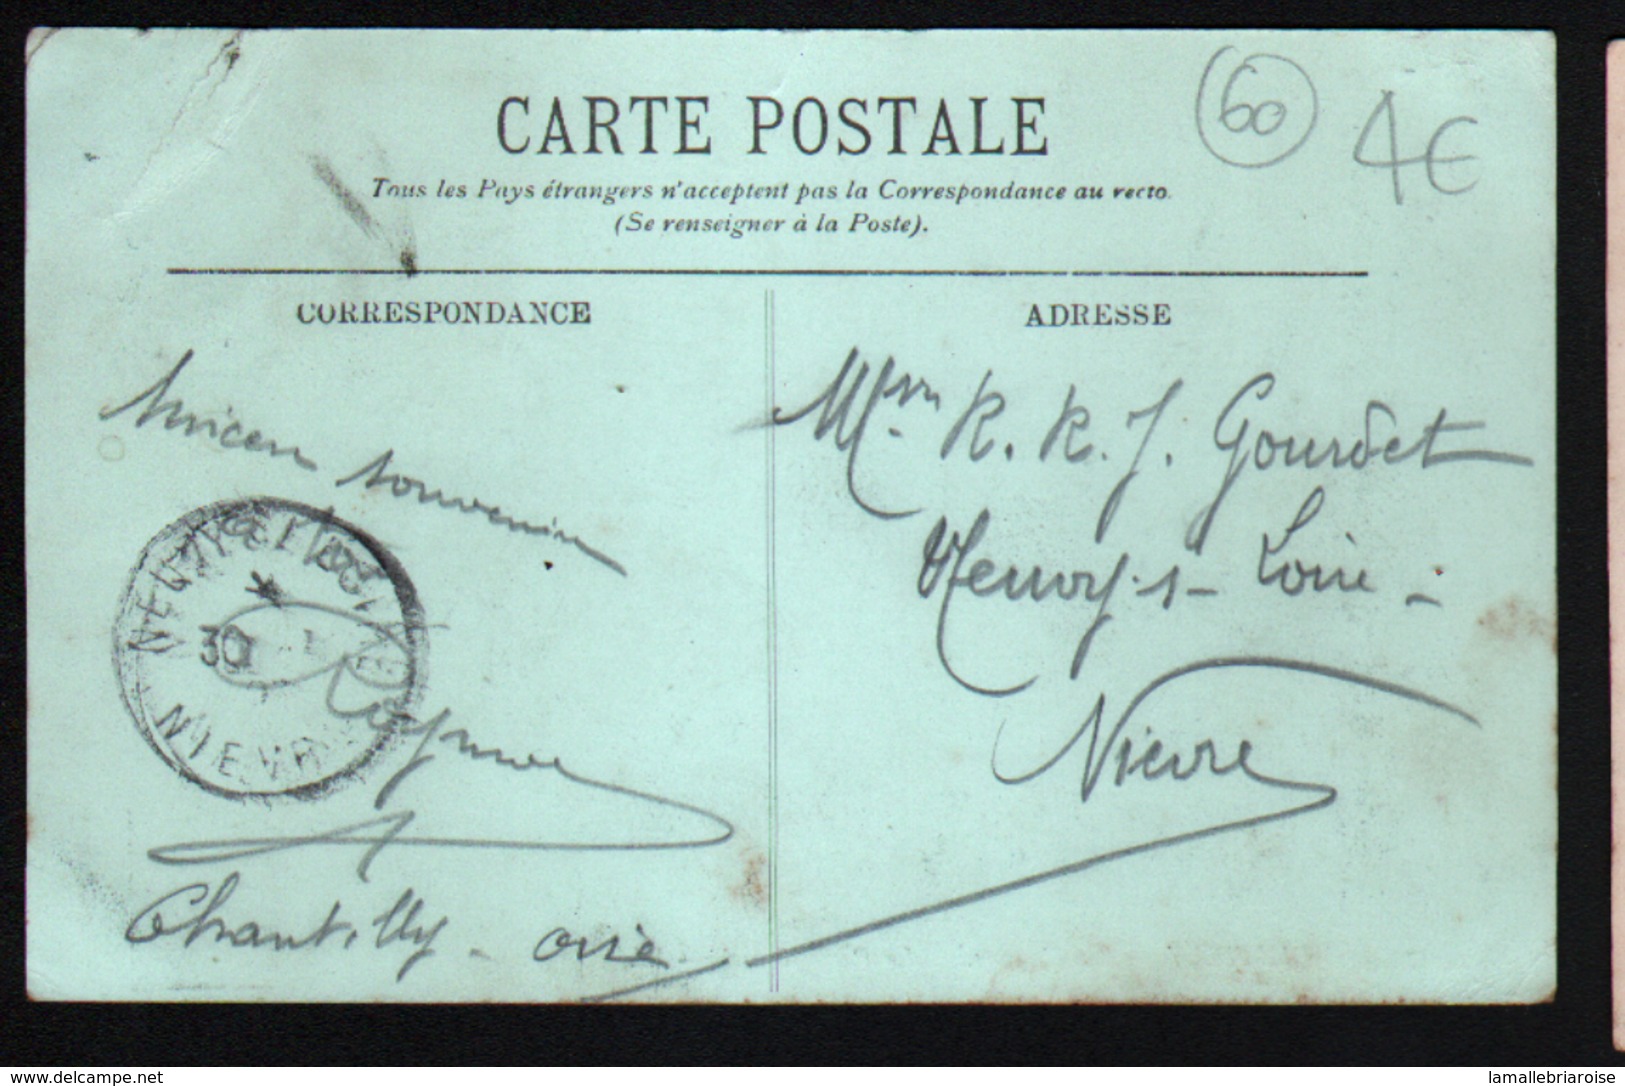 CARTE POSTALE
60
4€
Tous les Pays étrangers n'acceptent pas la Correspondance au recto.
(Se renseigner à la Poste).
CORRESPONDANCE
ADRESSE
souvenir
NEUVY
30
NIEVRE
Chantilly - oise
R. R. J. Gourdet
Neuvy-s- Loire -
Nievre
www.delcampe.net
lamallebriaroise